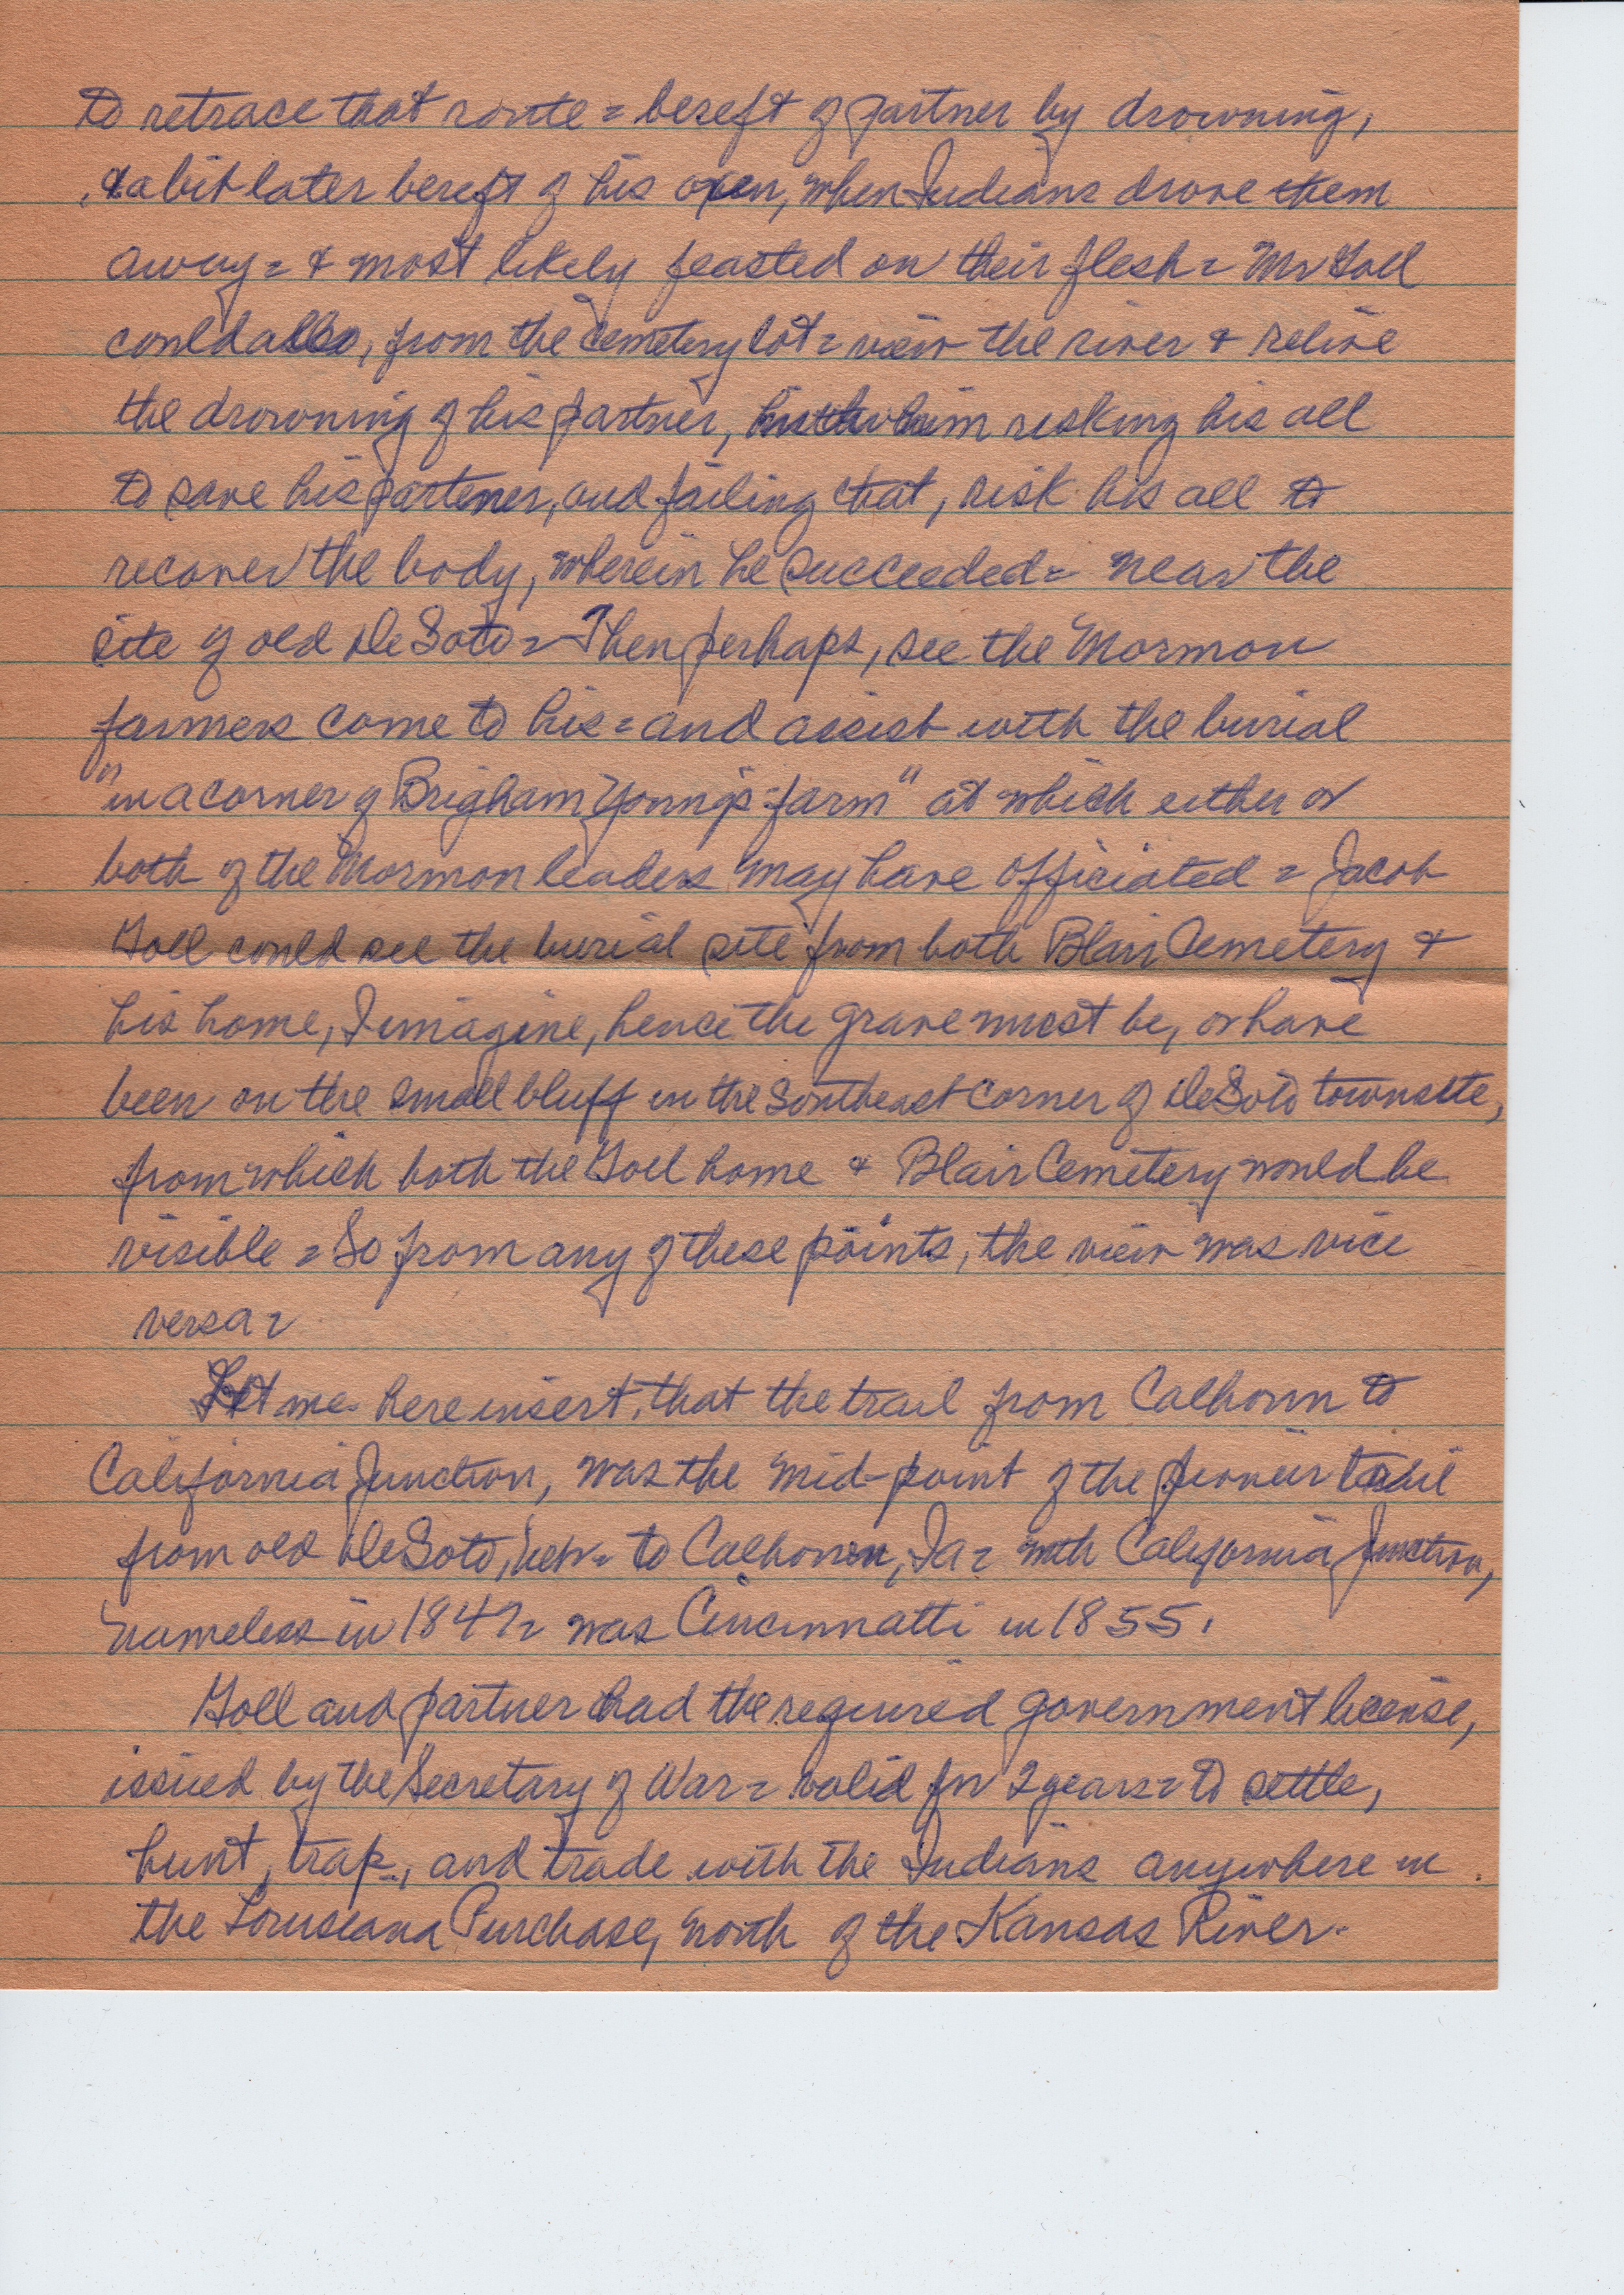 to retrace that route = bereft of partner by drowning,
& a bit later bereft of his oxen, when Indians drove them
away = & most likely feasted on their flesh = Mr Goll
could also, from the cemetery lot = view the river & relive
the drowning of his partner, him risking his all
to save his partener, and failing that, risk his all to
recover the body, wherein he succeeded = near the
site of old DeSoto = Then perhaps, see the Mormon
farmers come to his = and assist with the burial
"in a corner of Brigham Young's farm" at which either or
both of the Mormon leaders may have officiated = Jacob
Goll could see the burial site from both Blair Cemetery &
his home, I imagine, hence the grave must be, or have
been on the small bluff in the Southeast Corner of DeSoto townsite,
from which both the Goll home & Blair Cemetery would be
visible = So from any of these points, the view was vice
versa =
Let me here insert, that the trail from Calhoun to
California Junction, was the mid-point of the pioneer trail
from old DeSoto, Neb = to Calhoun, Ia = with California Junction,
nameless in 1847 = was Cincinnatti in 1855.
Goll and partner had the required government license,
issued by the Secretary of War = valid for 2 years = to settle,
hunt, trap, and trade with the Indians anywhere in
the Louisiana Purchase, north of the Kansas River.